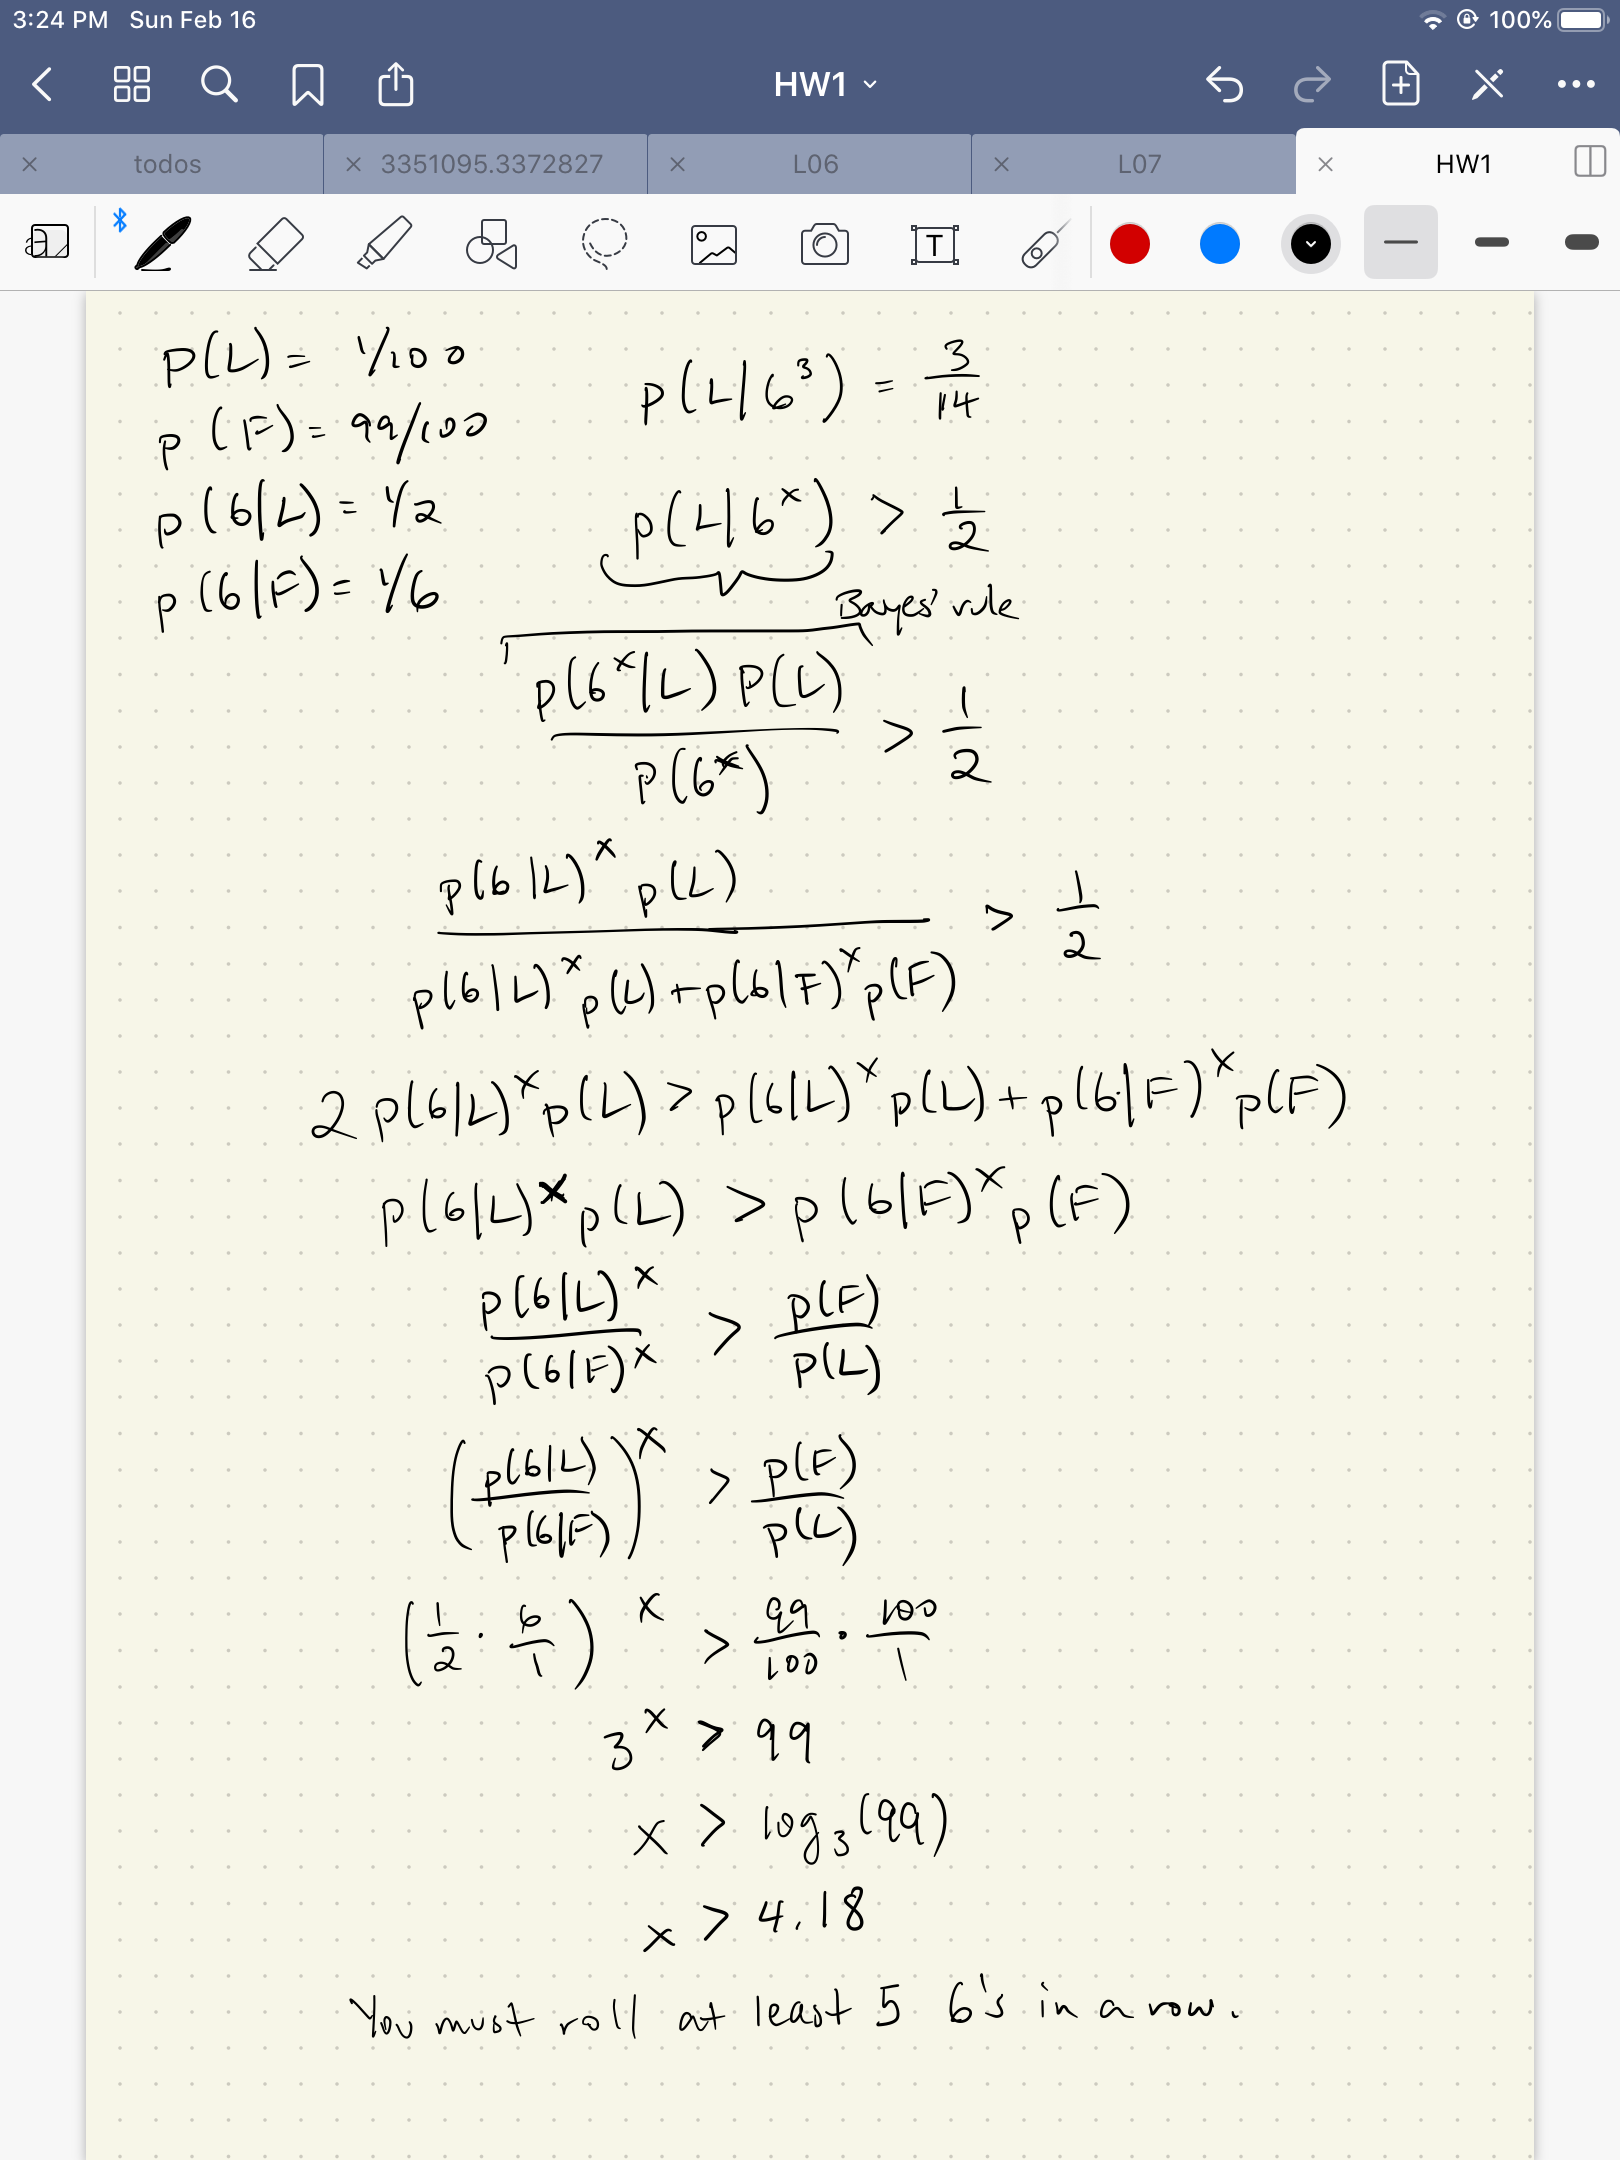 3:24 PM Sun Feb 16 100%
HW1
todos 3351095.3372827 L06 L07 HW1
T
P(L) = 1/100
p(F) = 99/100
p(6|L) = 1/2
p(6|F) = 1/6
p(L|6^3) = 3/14
p(L|6^x) > 1/2
Bayes' rule
p(6^x|L) P(L) / P(6^x) > 1/2
p(6|L)^x p(L) / p(6|L)^x p(L) + p(6|F)^x p(F) > 1/2
2 p(6|L)^x p(L) > p(6|L)^x p(L) + p(6|F)^x p(F)
p(6|L)^x p(L) > p(6|F)^x p(F)
p(6|L)^x / p(6|F)^x > p(F) / P(L)
(p(6|L) / p(6|F))^x > p(F) / p(L)
(1/2 · 6/1)^x > 99/100 · 100/1
3^x > 99
x > log_3(99)
x > 4.18
You must roll at least 5 6's in a row.